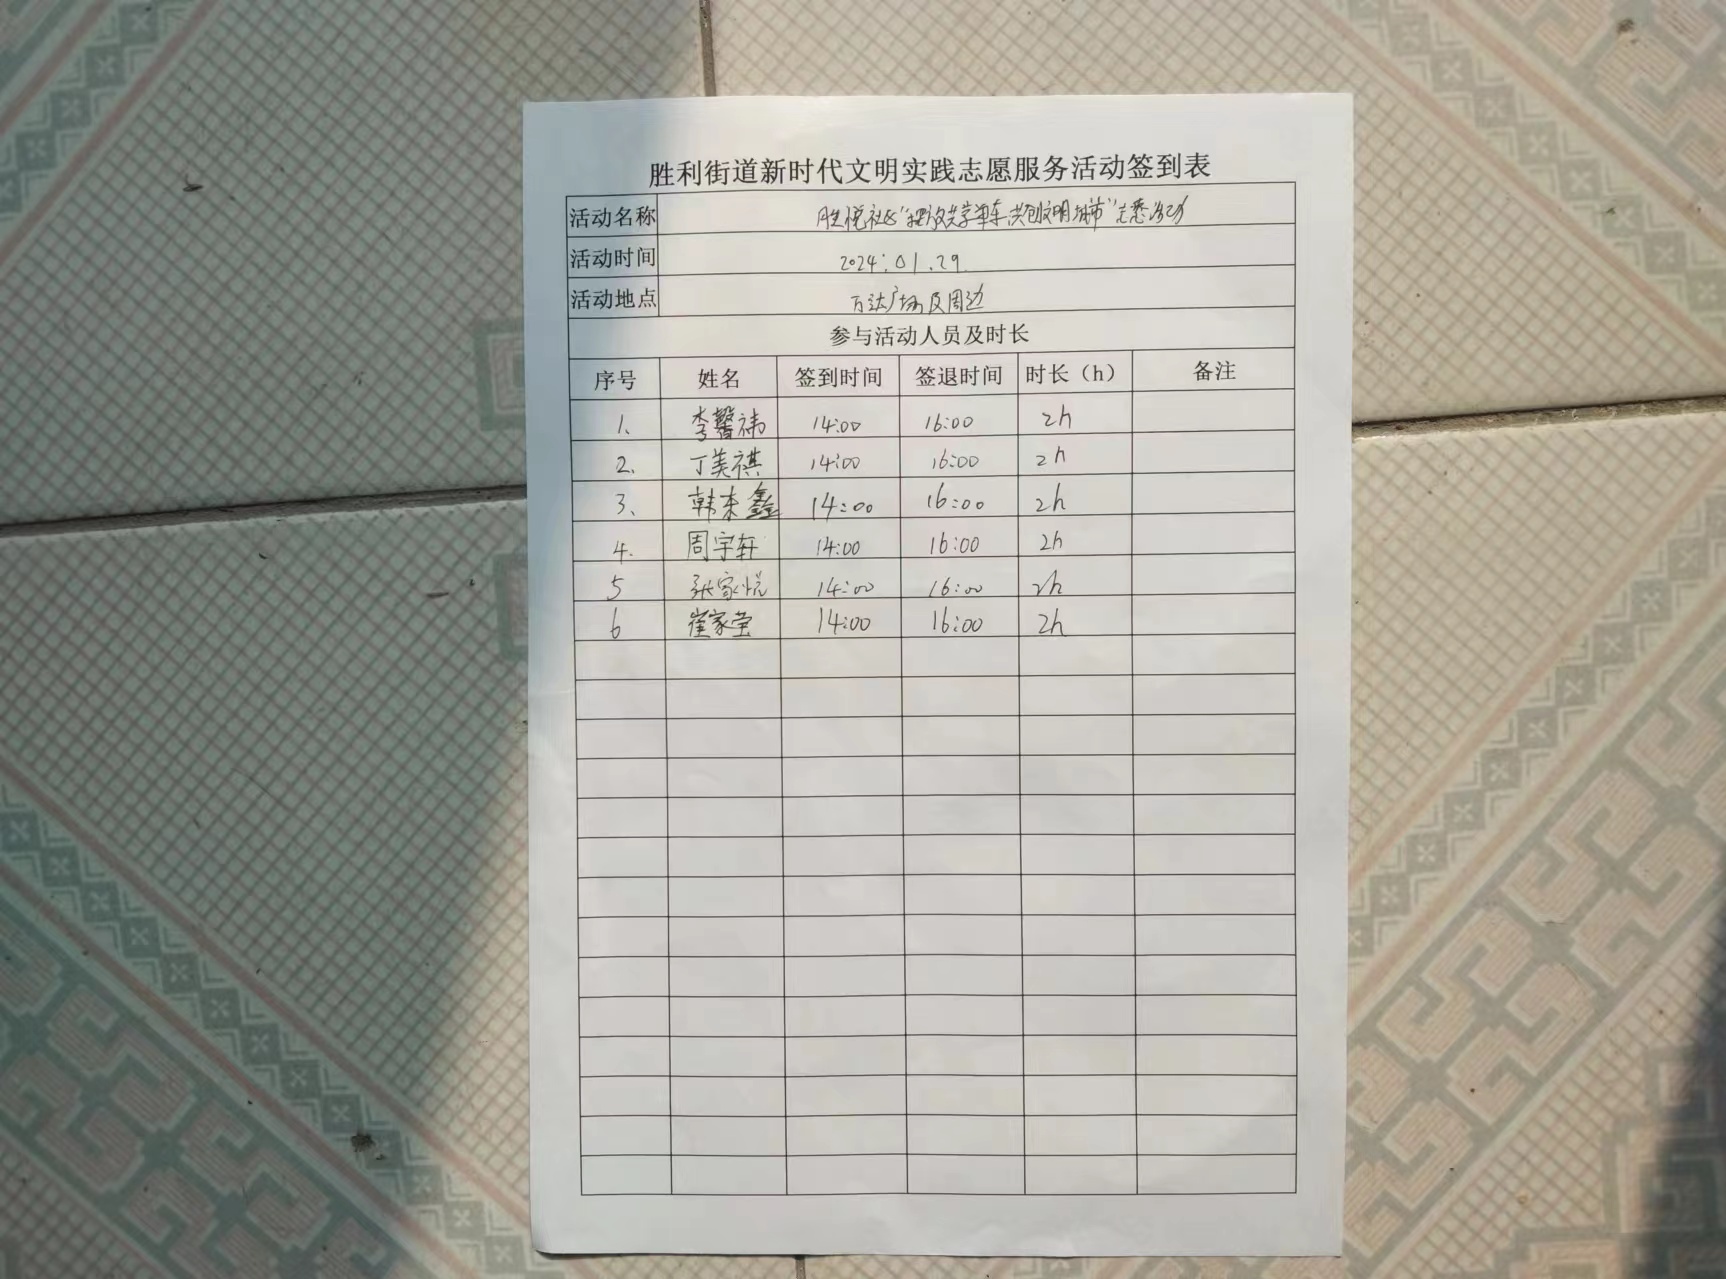 胜利街道新时代文明实践志愿服务活动签到表
活动名称 胜悦社区“摆放共享单车 共创文明城市”志愿活动
活动时间 2024.01.29.
活动地点 万达广场及周边
参与活动人员及时长
序号 姓名 签到时间 签退时间 时长（h） 备注
1、 李馨祎 14:00 16:00 2h
2、 丁美祺 14:00 16:00 2h
3、 韩东鑫 14:00 16:00 2h
4. 周宇轩 14:00 16:00 2h
5 张家悦 14:00 16:00 2h
6 崔家莹 14:00 16:00 2h